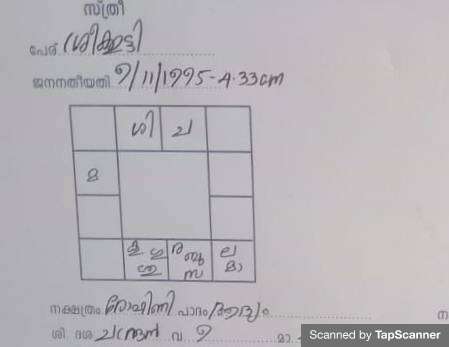 സ്ത്രീ
പേര് ശ്രീക്കുട്ടി
ജനനതീയതി 9/11/1995 - 4.33am
ശി ച
മ
കു ഗു ശു ര ബു സ ല മാ
നക്ഷത്രം രോഹിണി പാദം ആദ്യം
ശി ദശ ചന്ദ്രൻ വ 9 മാ
Scanned by TapScanner